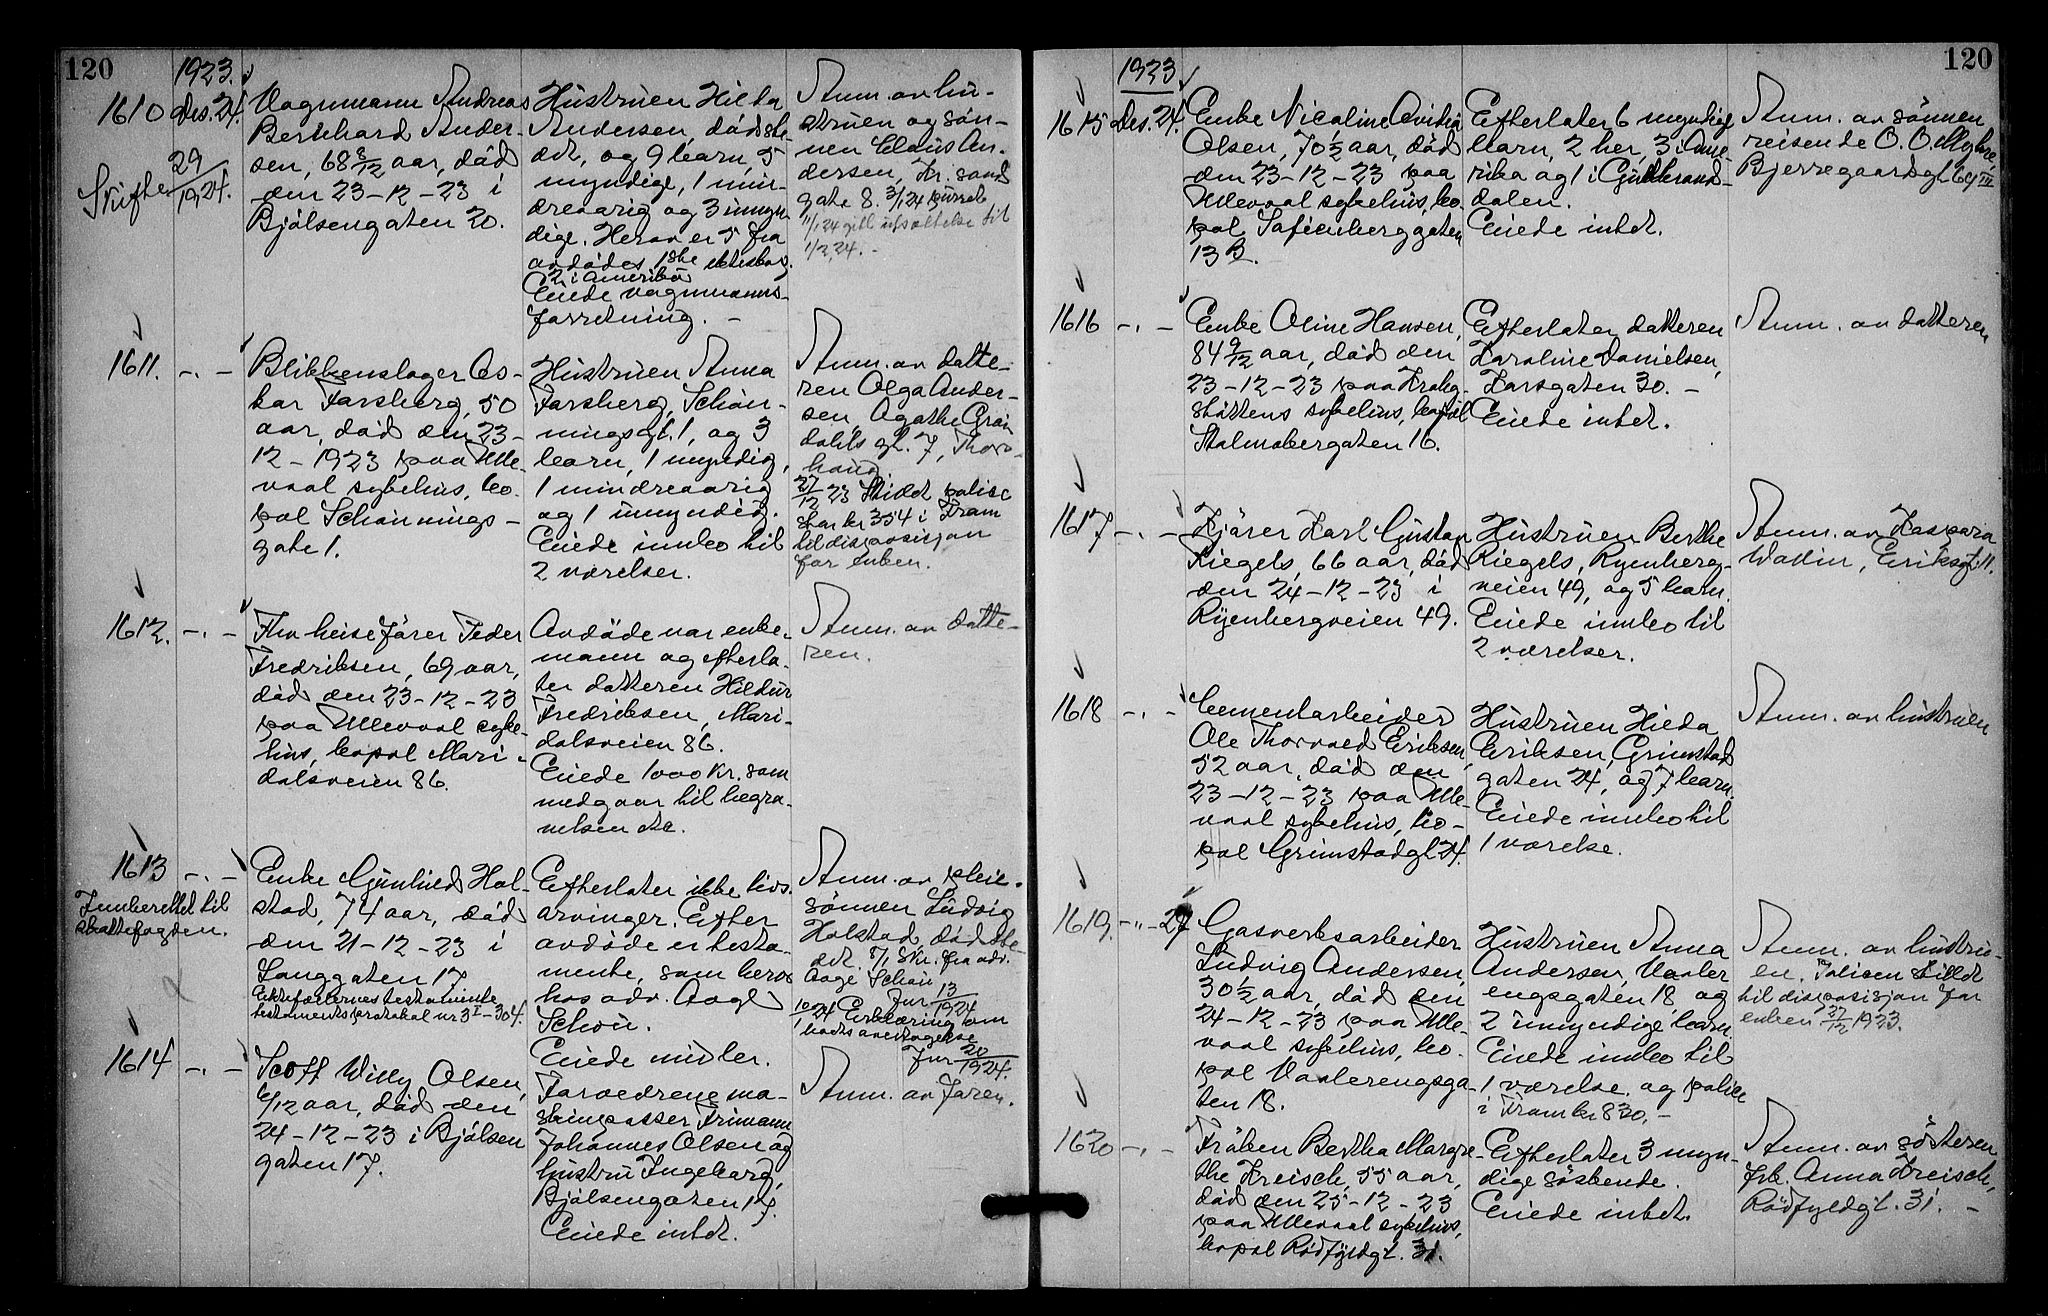 120
1923.
1610 Des. 24.
Skifte 29/1924.
Vognmann Andreas
Bernhard Ander-
sen, 68 8/12 aar, død
den 23-12-23 i
Bjølsengaten 20.
Hustruen Hilda
Andersen, dødste-
det, og 9 barn, 5
myndige, 1 min-
dreaarig og 3 umyn
dige. Herav er 5 fra
avdødes 1ste ekteskap.
2 i Amerika
Eiede vognmanns-
forretning. -
Anm. av hu-
struen og søn-
nen Claus An-
dersen, Kr. sands
gate 8. 3/1 24 purret
11/1 24 gitt utsættelse til
1/2 24. -
1611. -.-
Blikkenslager Os-
kar Forsberg, 50
aar, død den 23-
12-1923 paa Ulle-
vaal sykehus, bo-
pæl Schønnings-
gate 1.
Hustruen Anna
Forsberg, Schøn-
ningsgt. 1, og 3
barn, 1 myndig,
1 mindreaarig
og 1 umyndig.
Eiede innbo til
2 værelser.
Anm. av datte-
ren Olga Ander-
sen, Agathe Grøn
dahls gt. 7, Thors-
haug.
27/12 23 Stillet police
stor kr 354 i Fram
til disposisjon
for enken.
1612. -.-
Fhv heisefører Peder
Fredriksen, 69 aar,
død den 23-12-23
paa Ullevaal syke-
hus, bopæl Mari-
dalsveien 86.
Avdøde var enke-
mann og efterla-
ter datteren Hildur
Fredriksen, Mari-
dalsveien 86.
Eiede 1000 kr. som
medgaar til begra-
velsen etc.
Anm. av datte-
ren.
1613 -.-
Innberettet til
skattefogden.
Enke Gunhild Hol-
stad, 74 aar, død
den 21-12-23 i
Langgaten 17
Ektefællernes testamente
testamentsprotokol nr 3 I - 304.
Efterlater ikke livs-
arvinger. Efter
avdøde er testa-
mente, som beros
hos adv. Aage
Schou.
Eiede midler.
Anm. av pleie-
sønnen Ludvig
Holstad, dødste-
det. 5/1 Skr. fra adv.
Aage Schou
Jnr 13/1924
10/1 24 Erklæring om
boets overtagelse
Jnr 20/1924.
1614 -.-
Scott Willy Olsen,
6/12 aar, død den
24-12-23 i Bjølsen
gaten 17.
Foreldrene ma-
skinpasser Frimann
Johannes Olsen og
hustru Ingeborg,
Bjølsengaten 17.
Eiede intet.
Anm. av faren.
120
1923
1615 Des. 24.
Enke Nicoline Ovidia
Olsen, 70 1/2 aar, død
den 23-12-23 paa
Ullevaal sykehus, bo-
pæl Sofienberggaten
13 B.
Efterlater 6 myndige
barn, 2 her, 3 i Ame-
rika og 1 i Gudbrands-
dalen.
Eiede intet.
Anm. av sønnen
reisende O. O. Myhre,
Bjerregaardsgt. 69 III
1616 -.-
Enke Oline Hansen,
84 9/12 aar, død den
23-12-23 paa Krohg-
støttens sykehus, bopæl
Stolmabergaten 16.
Efterlater datteren
Karoline Danielsen,
Korsgaten 30. -
Eiede intet.
Anm. av datteren
1617 -.-
Kjører Karl Gustav
Riegels, 66 aar, død
den 24-12-23 i
Ryenbergveien 49.
Hustruen Berthe
Riegels, Ryenberg-
veien 49, og 5 barn.
Eiede innbo til
2 værelser.
Anm. av Kaspara
Wallin, Eriksgt. 11.
1618 -.-
Cementarbeider
Ole Thorvald Eriksen,
52 aar, død den
23-12-23 paa Ulle-
vaal sykehus, bo-
pæl Grimstadgt 24.
Hustruen Hilda
Eriksen, Grimstad
gaten 24, og 7 barn.
Eiede innbo til
1 værelse.
Anm. av hustruen
1619. -"- 27
Gasverksarbeider
Ludvig Andersen,
30 1/2 aar, død den
24-12-23 paa Ulle-
vaal sykehus, bo-
pæl Vaalerengsga-
ten 18.
Hustruen Anna
Andersen, Vaaler
engsgaten 18 og
2 umyndige barn
Eiede innbo til
1 værelse og police
i Fram kr 830.-
Anm. av hustru-
en. Policen stillet
til disposisjon for
enken 27/12 1923.
1620 -.-
Frøken Bertha Margre-
the Kreisch, 55 aar,
død den 25-12-23
paa Ullevaal sykehus,
bopæl Rødfyldgt. 31.
Efterlater 3 myn-
dige søskende.
Eiede intet.
Anm. av søsteren
frk. Anna Kreisch,
Rødfyldgt. 31. -